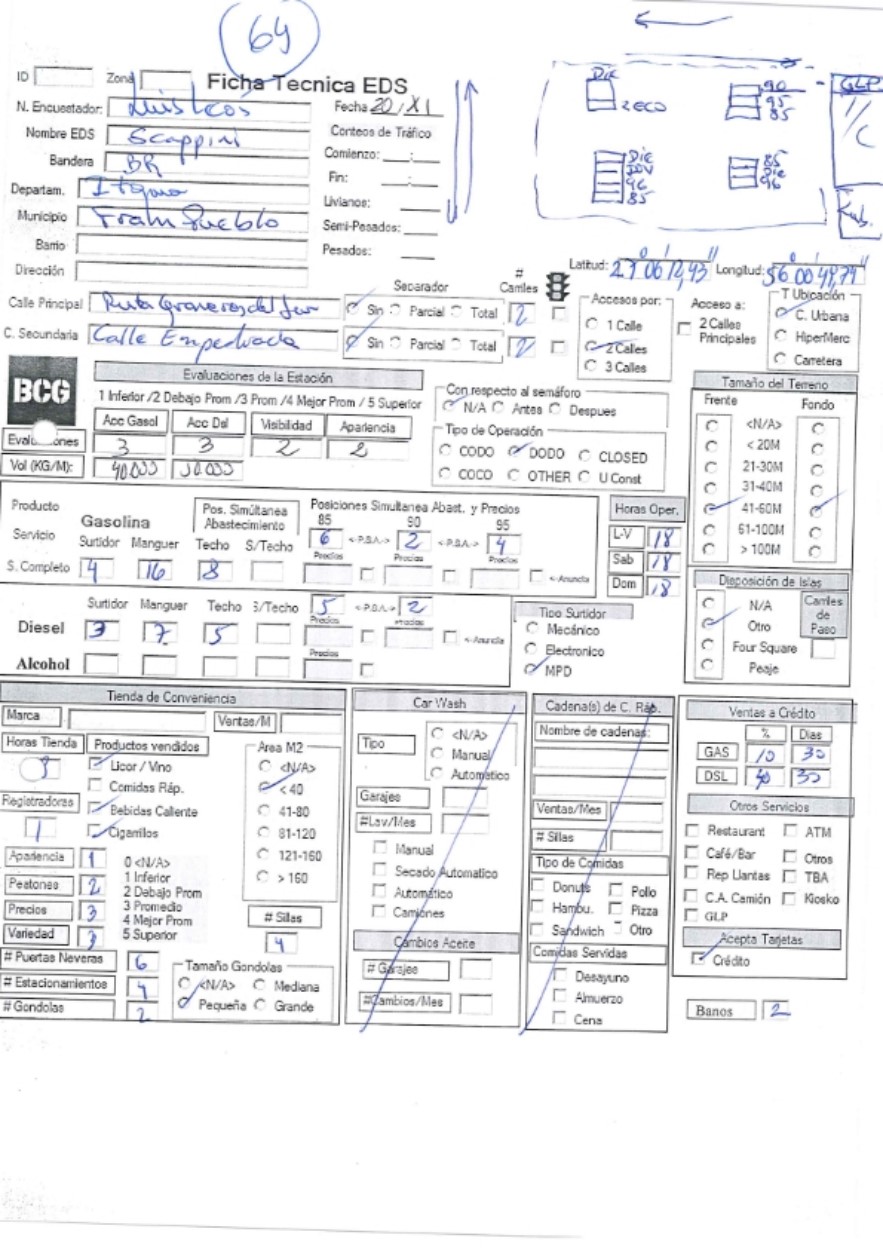 64
ID Zona Ficha Tecnica EDS
N. Encuestador: Luis Leos Fecha 20/XI
Nombre EDS Scappini Conteos de Tráfico
Bandera BR Comienzo: __:__
Departam. Itapua Fin: __:__
Municipio Tram Pueblo Livianos:
Barrio Semi-Pesados:
Dirección Pesados:
Die
2 eco
90
95
85
GLP
Die
96
85
85
Die
96
Latitud: 27 06 12,43" Longitud: 56 00 49,79"
Calle Principal Ruta Graneros del Sur Separador Sin Parcial Total # Carriles 2
C. Secundaria Calle Empedrada Sin Parcial Total 2
Accesos por:
1 Calle
2 Calles
3 Calles
Acceso a:
2 Calles Principales
T Ubicación
C. Urbana
HiperMerc
Carretera
BCG
Evaluaciones de la Estación
1 Inferior /2 Debajo Prom /3 Prom /4 Mejor Prom / 5 Superior
Acc Gasol Acc Dsl Visibilidad Apariencia
Evaluaciones 3 3 2 2
Vol (KG/M): 40.000 30.000
Con respecto al semáforo
N/A Antes Despues
Tipo de Operación
CODO DODO CLOSED
COCO OTHER U Const
Tamaño del Terreno
Frente Fondo
<N/A>
< 20M
21-30M
31-40M
41-60M
61-100M
> 100M
Producto
Servicio
Gasolina
Pos. Simúltanea Abastecimiento
Posiciones Simultanea Abast. y Precios
85 90 95
Surtidor Manguer Techo S/Techo 6 <-P.S.A.-> 2 <-P.S.A.-> 4
Precios Precios Precios
S. Completo 4 16 8 <-Anuncia
Horas Oper.
L-V 18
Sab 18
Dom 18
Surtidor Manguer Techo S/Techo 5 <-P.S.A.-> 2
Precios Precios
Diesel 3 7 5 <-Anuncia
Precios
Alcohol
Tipo Surtidor
Mecánico
Electronico
MPD
Disposición de Islas
N/A
Otro
Four Square
Peaje
Carriles de Paso
Tienda de Conveniencia
Marca Ventas/M
Horas Tienda Productos vendidos
Licor / Vino
Comidas Ráp.
Registradoras Bebidas Caliente
1 Cigarrilos
Area M2
<N/A>
< 40
41-80
81-120
121-160
> 160
Apariencia 1
Peatones 2
Precios 3
Variedad 3
0 <N/A>
1 Inferior
2 Debajo Prom
3 Promedio
4 Mejor Prom
5 Superior
# Sillas
4
# Puertas Neveras 6
# Estacionamientos 4
# Gondolas 2
Tamaño Gondolas
<N/A> Mediana
Pequeña Grande
Car Wash
Tipo
<N/A>
Manual
Automático
Garajes
#Lav/Mes
Manual
Secado Automatico
Automático
Camiones
Cambios Aceite
# Garajes
#Cambios/Mes
Cadena(s) de C. Ráp.
Nombre de cadenas:
Ventas/Mes
# Sillas
Tipo de Comidas
Donuts Pollo
Hambu. Pizza
Sandwich Otro
Comidas Servidas
Desayuno
Almuerzo
Cena
Ventas a Crédito
% Dias
GAS 10 30
DSL 40 30
Otros Servicios
Restaurant ATM
Café/Bar Otros
Rep Llantas TBA
C.A. Camión Kiosko
GLP
Acepta Tarjetas
Crédito
Banos 2